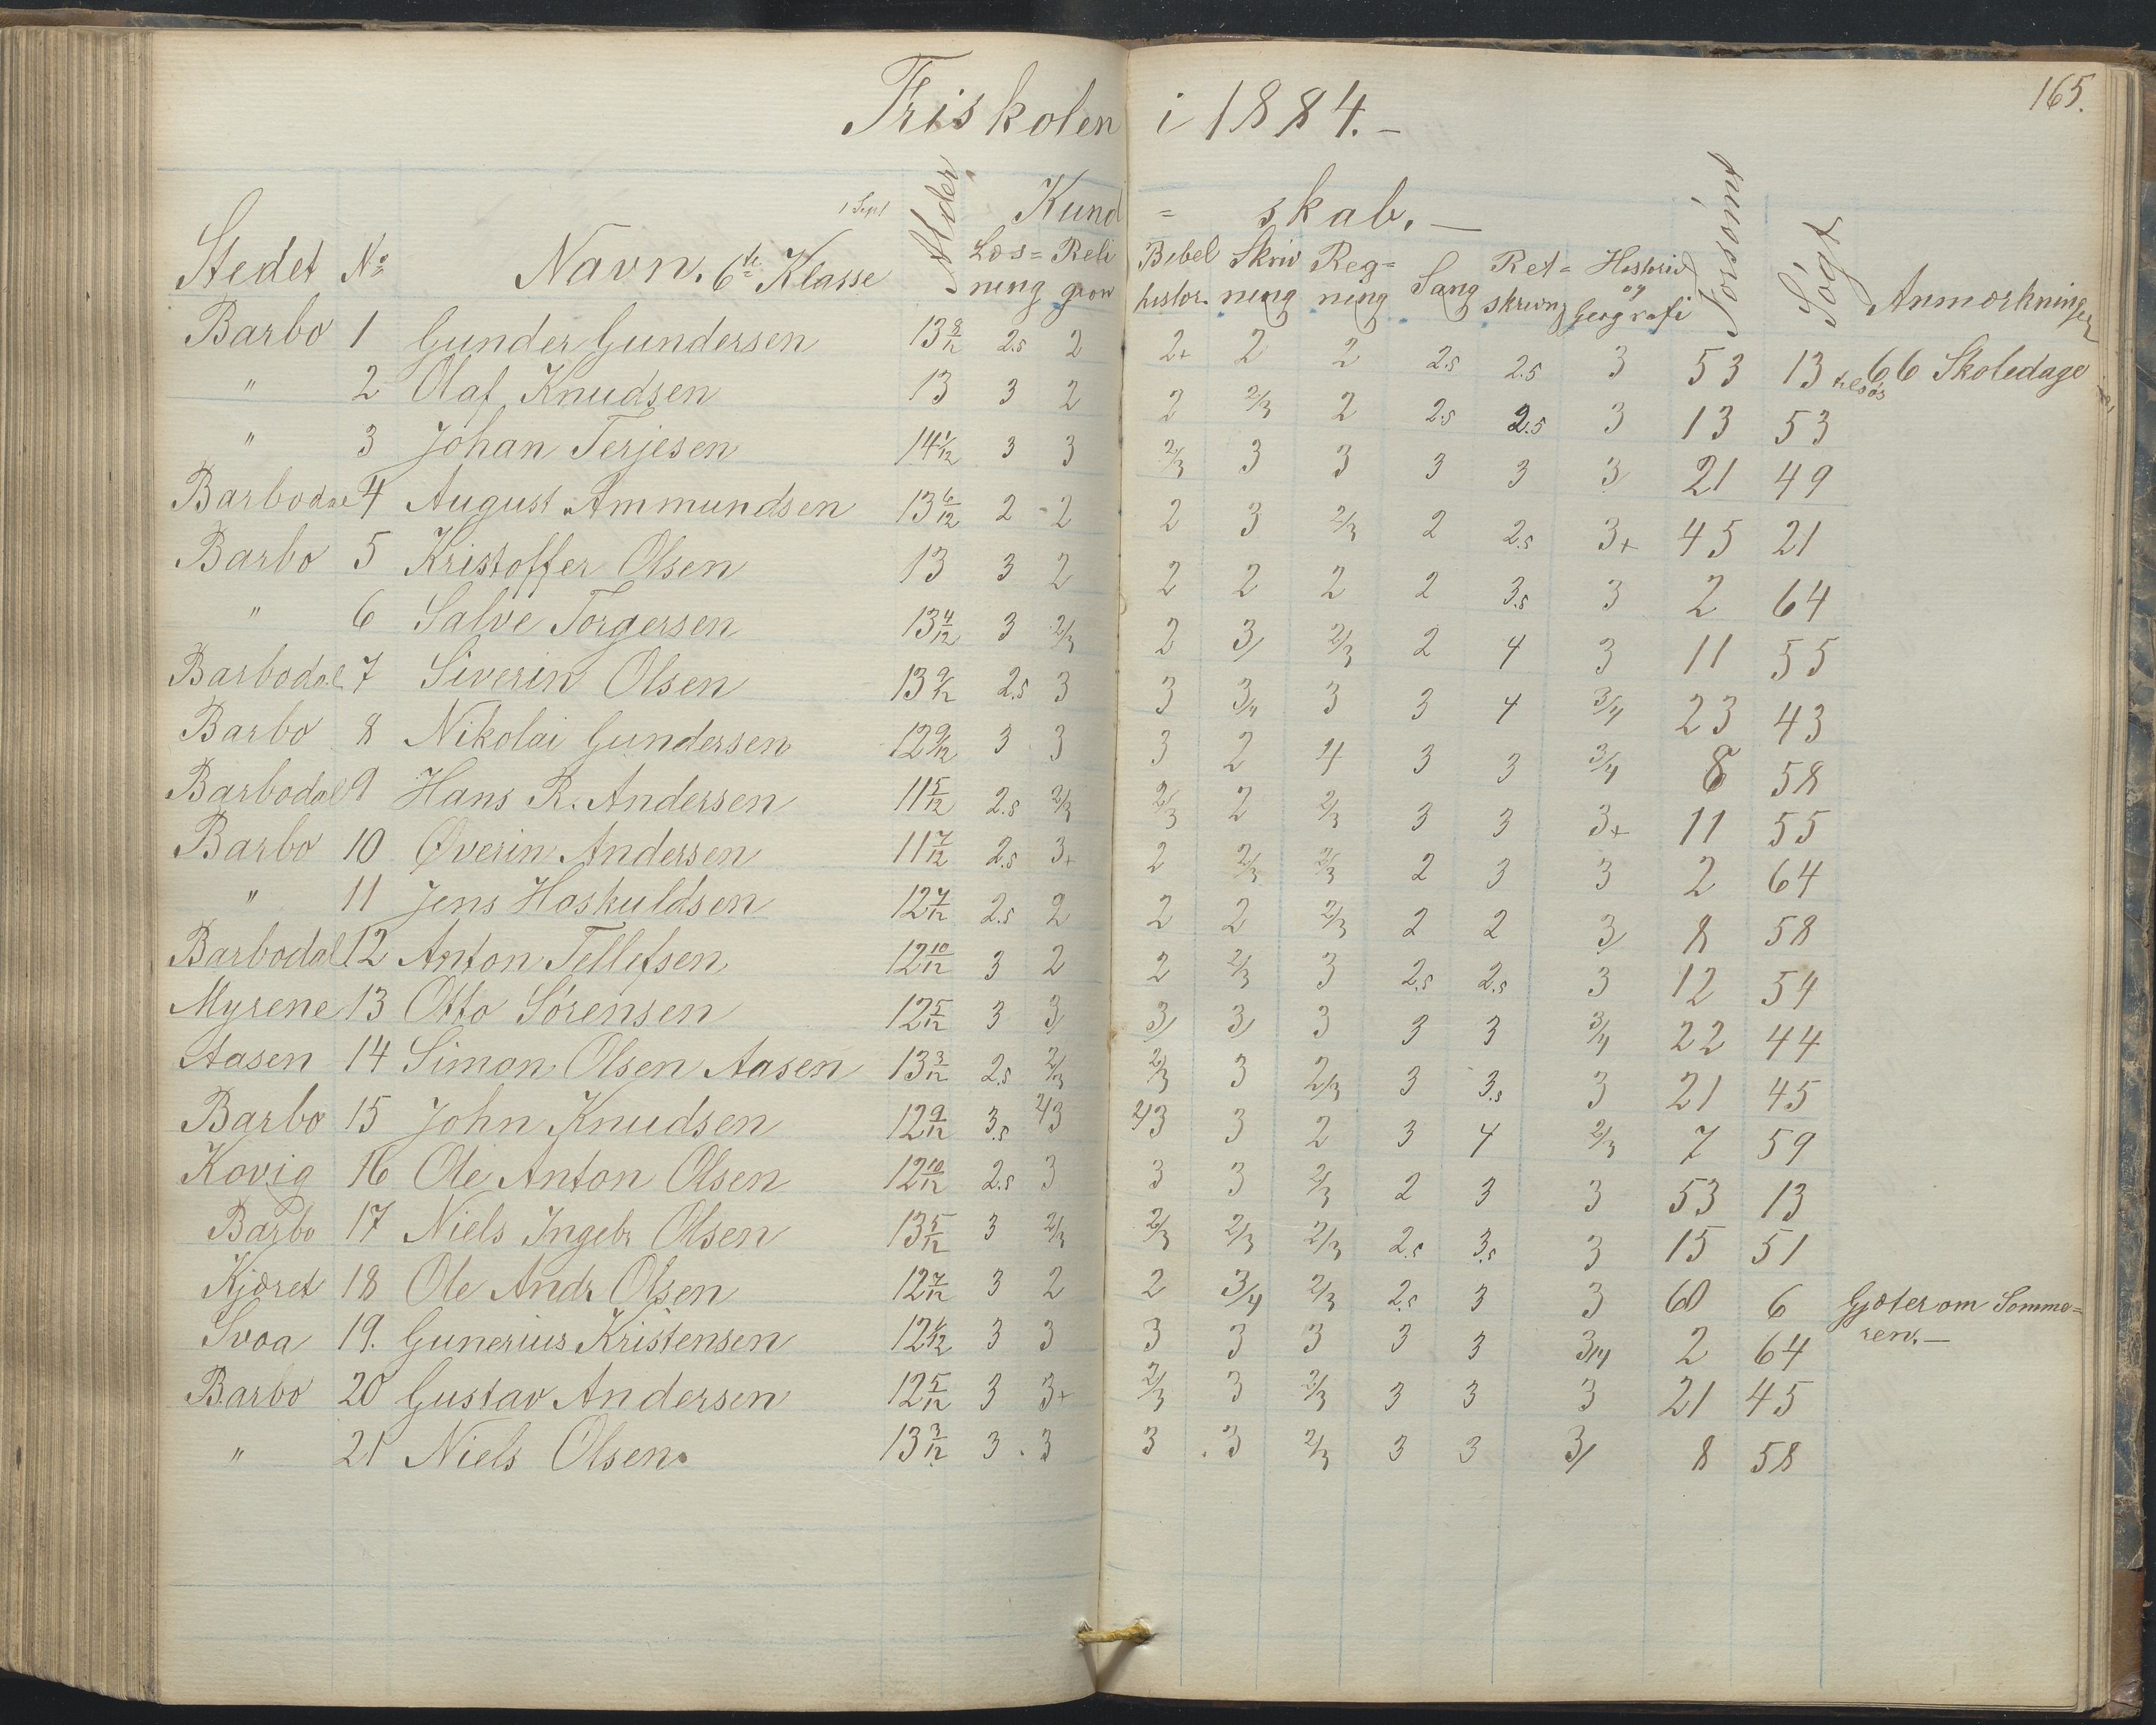 165.
Friskolen i 1884. –
Stedet No Navn. 6te Klasse 1 Sept Alder Kund = skab. – Forsømt Søgt Anmærkninger
Læs= Reli Bibel Skriv Reg= Sang Ret= Historie
ning gion histor. ning ning skrivng og Geografi
Barbo 1 Gunder Gundersen 13 8/12 2.5 2 2+ 2 2 2.5 2.5 3 53 13 66 Skoledage
" 2 Olaf Knudsen 13 3 2 2 2/3 2 2.5 2.5 3 13 53
" 3 Johan Terjesen 14 1/12 3 3 2/3 3 3 3 3 3 21 49
Barbodal 4 August Ammundsen 13 6/12 2 2 2 3 2/3 2 2.5 3+ 45 21
Barbo 5 Kristoffer Olsen 13 3 2 2 2 2 2 3.5 3 2 64
" 6 Salve Torgersen 13 4/12 3 2/3 2 3/ 2/3 2 4 3 11 55
Barbodal 7 Siverin Olsen 13 9/12 2.5 3 3 3/4 3 3 4 3/4 23 43
Barbo 8 Nikolai Gundersen 12 9/12 3 3 3 2 4 3 3 3/4 8 58
Barbodal 9 Hans R. Andersen 11 5/12 2.5 2/3 2/3 2 2/3 3 3 3+ 11 55
Barbo 10 Øverin Andersen 11 7/12 2.5 3+ 2 2/3 2/3 2 3 3 2 64
" 11 Jens Hoskuldsen 12 7/12 2.5 2 2 2 2/3 2 2 3/ 8 58
Barbodal 12 Anton Tellefsen 12 10/12 3 2 2 2/3 3 2.5 2.5 3 12 54
Myrene 13 Otto Sörensen 12 5/12 3 3/ 3/ 3/ 3 3 3 3/4 22 44
Aasen 14 Simon Olsen Aasen 13 3/12 2.5 2/3 2/3 3 2/3 3 3.5 3 21 45
Barbo 15 John Knudsen 12 9/12 3.5 2/3 2/3 3 2 3 4 2/3 7 59
Kovig 16 Ole Anton Olsen 12 10/12 2.5 3 3 3 2/3 2 3 3 53 13
Barbo 17 Niels Ingebr Olsen 13 5/12 3 2/3 2/3 2/3 2/3 2.5 3.5 3 15 51
Kjæret 18 Ole Andr. Olsen 12 7/12 3 2 2 3/4 2/3 2.5 3 3 60 6 Gjæter om Somme=
ren. –
Svoa 19. Gunerius Kristensen 12 6/12 3 3 3 3 3 3 3 3/4 2 64
Barbo 20 Gustav Andersen 12 5/12 3 3+ 2/3 3 2/3 3 3 3 21 45
" 21 Niels Olsen. 13 3/12 3 3 3 3 2/3 3 3 3/ 8 58